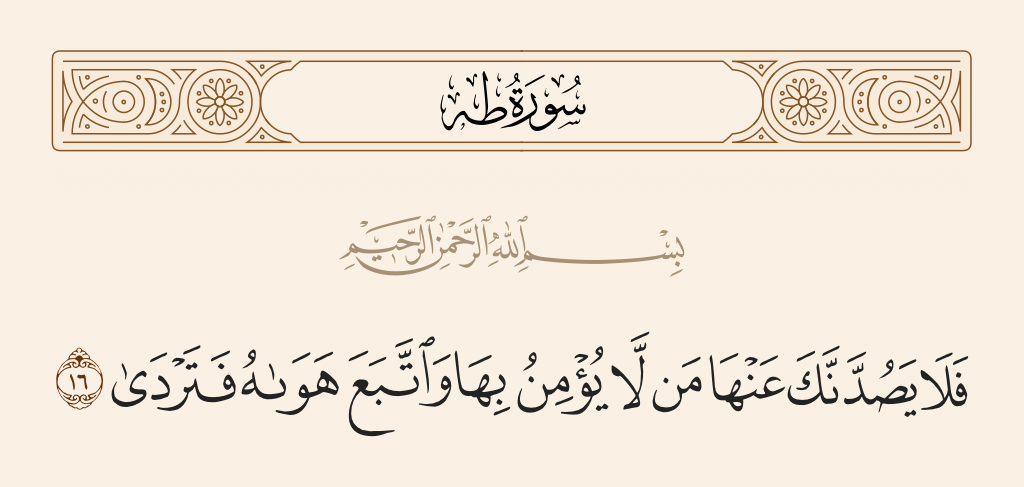 سُورَةُ طه
بِسْمِ ٱللَّهِ ٱلرَّحْمَٰنِ ٱلرَّحِيمِ
فَلَا يَصُدَّنَّكَ عَنْهَا مَن لَّا يُؤْمِنُ بِهَا وَٱتَّبَعَ هَوَىٰهُ فَتَرْدَىٰ ١٦